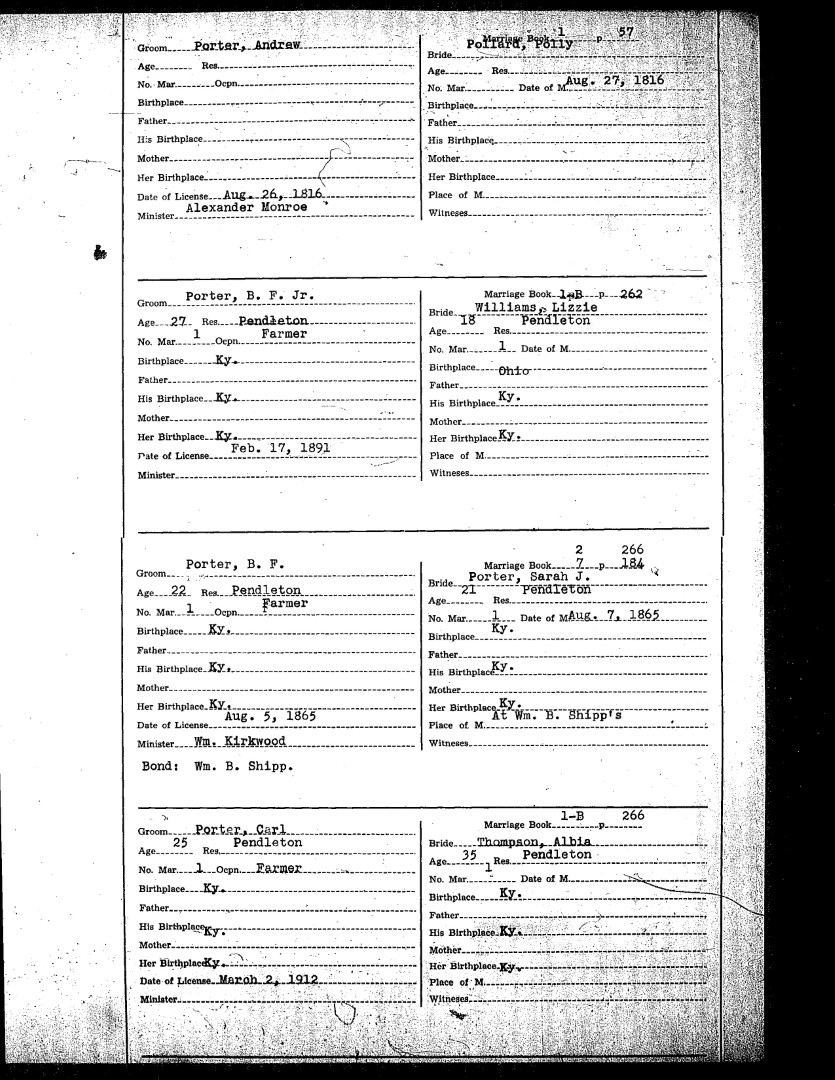 Marriage Book 1 p 57
Groom Porter, Andrew
Bride Pollard, Polly
Age Res.
Age Res.
No. Mar. Ocpn.
No. Mar. Date of M. Aug. 27, 1816
Birthplace
Birthplace
Father
Father
His Birthplace
His Birthplace
Mother
Mother
Her Birthplace
Her Birthplace
Date of License Aug. 26, 1816
Place of M.
Minister Alexander Monroe
Witneses
Marriage Book 1-B p 262
Groom Porter, B. F. Jr.
Bride Williams, Lizzie
Age 27 Res. Pendleton
Age 18 Res. Pendleton
No. Mar. 1 Ocpn. Farmer
No. Mar. 1 Date of M.
Birthplace Ky.
Birthplace Ohio
Father
Father
His Birthplace Ky.
His Birthplace Ky.
Mother
Mother
Her Birthplace Ky.
Her Birthplace Ky.
Date of License Feb. 17, 1891
Place of M.
Minister
Witneses
2 266
Marriage Book 7 p 184
Groom Porter, B. F.
Bride Porter, Sarah J.
Age 22 Res. Pendleton
Age 21 Res. Pendleton
No. Mar. 1 Ocpn. Farmer
No. Mar. 1 Date of M. Aug. 7, 1865
Birthplace Ky.
Birthplace Ky.
Father
Father
His Birthplace Ky.
His Birthplace Ky.
Mother
Mother
Her Birthplace Ky.
Her Birthplace Ky.
Date of License Aug. 5, 1865
Place of M. At Wm. B. Shipp's
Minister Wm. Kirkwood
Witneses
Bond: Wm. B. Shipp.
Marriage Book 1-B p 266
Groom Porter, Carl
Bride Thompson, Albia
Age 25 Res. Pendleton
Age 35 Res. Pendleton
No. Mar. 1 Ocpn. Farmer
No. Mar. 1 Date of M.
Birthplace Ky.
Birthplace Ky.
Father
Father
His Birthplace Ky.
His Birthplace Ky.
Mother
Mother
Her Birthplace Ky.
Her Birthplace Ky.
Date of License March 2, 1912
Place of M.
Minister
Witneses